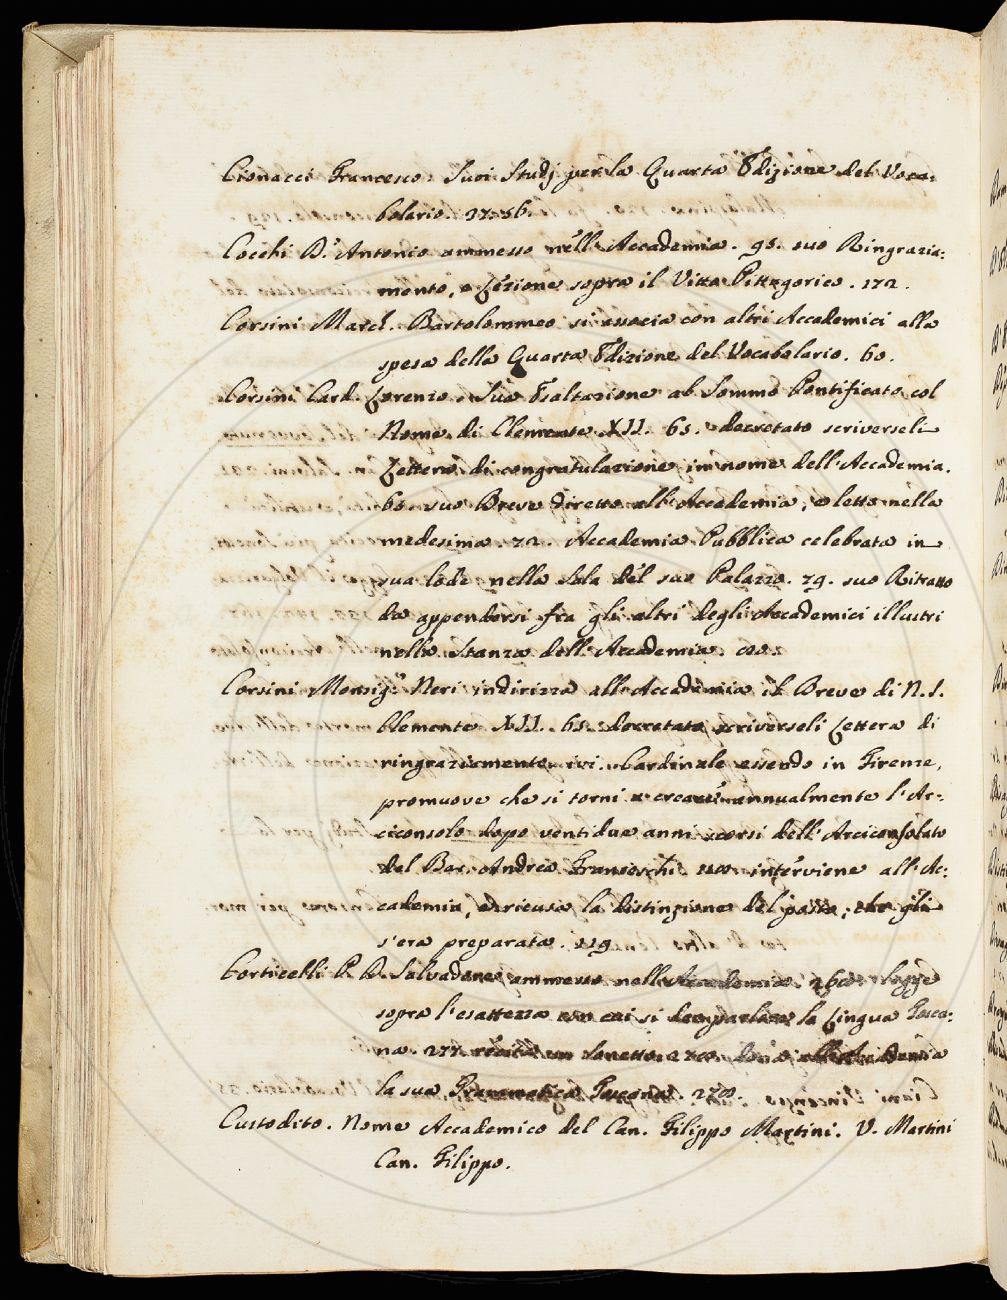 Cionacci Francesco: Suoi Studj per la Quarta Edizione del Voca-
bolario. 37. 56.
Cocchi D.r Antonio ammesso nell'Accademia. 95. suo Ringrazia-
mento, e Lezione sopra il Vitto Pittagorico. 172.
Corsini March. Bartolommeo si associa con altri Accademici alla
spesa della Quarta Edizione del Vocabolario. 60.
Corsini Card. Lorenzo, Sua Esaltazione al Sommo Pontificato col
Nome di Clemente XII. 65. decretato scriverseli
Lettera di congratulazione in nome dell'Accademia.
suo Breve diretto all'Accademia, e letto nella
medesima. 72. Accademia Pubblica celebrata in
sua lode nella Sala del suo Palazzo. 79. suo Ritratto
da appendersi fra gli altri degli Accademici illustri
nella Stanza dell'Accademia.
Corsini Monsig.r Neri indirizza all'Accademia il Breve di N. S.
Clemente XII. 65. decretato scriverseli Lettera di
ringraziamento. ivi. Cardinale essendo in Firenze,
promuove che si torni a creare annualmente l'Ar-
ciconsolo dopo ventidue anni scorsi dell'Arciconsolato
del Bar. Andrea Franceschi. interviene all'Ac-
cademia, e ricusa la distinzione del posto, che gli
s'era preparata. 119.
Corticelli P. D. Salvadore ammesso nell'Accademia. legge
sopra l'esattezza con cui si dee parlare la Lingua Tosca-
na. 277. recita un Sonetto. dona all'Accademia
la sua Grammatica Toscana.
Custodito. Nome Accademico del Can. Filippo Martini. V. Martini
Can. Filippo.